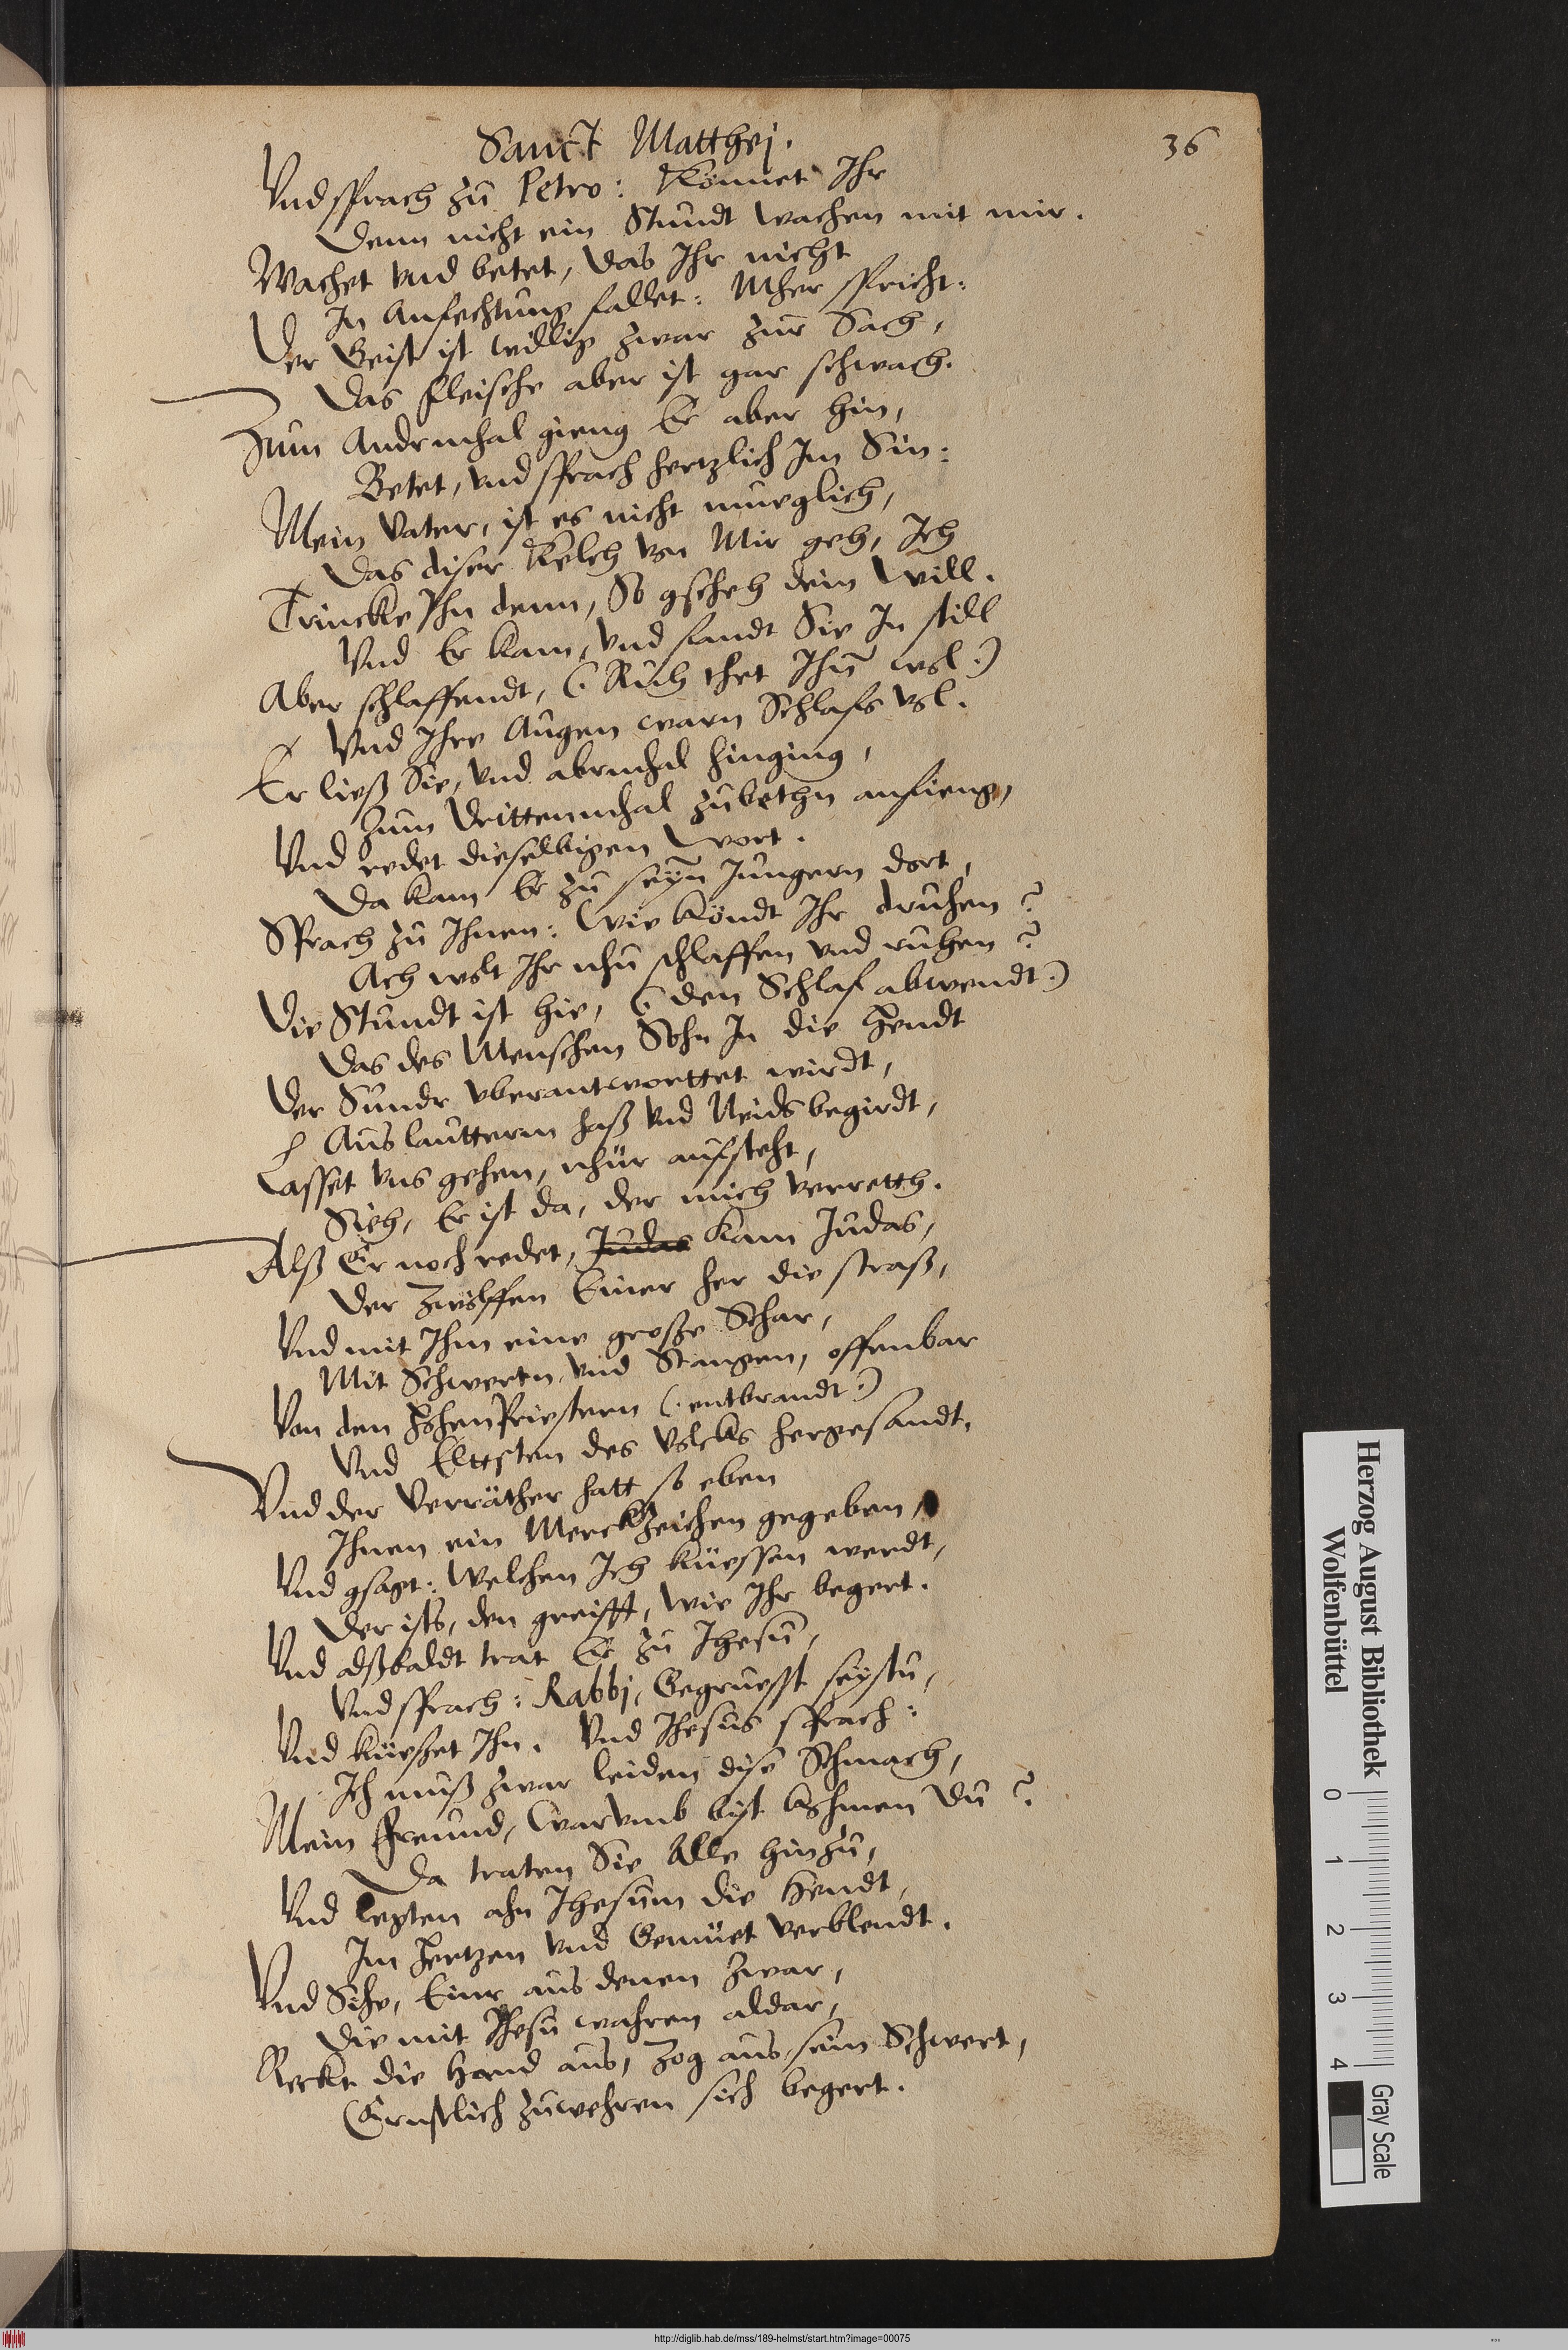 Sanct Matthej.
36
Vnd sprach zu Petro: Könnet Ihr
Denn nicht ein Stundt wachen mit mir.
Wachet vnd betet, das Ihr nicht
In Anfechtung fallet: Mher spricht:
Der Geist ist willig zwar zur Sach,
Das fleische aber ist gar schwach.
Zum Andrmhal gieng Er aber hin,
Betet, vnd sprach hertzlich Im Sin:
Mein Vater, ist es nicht mueglich,
Das diser Kelch von Mir geh, Ich
Trincke Ihn denn, So gscheh dein Will.
Vnd Er kam, vnd fandt Sie In still
Aber schlaffendt, (: Ruh thet Ihn wol :)
Vnd Ihre Augen warn Schlafs vol.
Er ließ Sie, vnd abrmhal hinging,
Zum Drittenmhal zubethn anfieng,
Vnd redet dieselbigen Wort.
Da kam Er zu seyn Jungern dort,
Sprach zu Ihnen: Wie köndt Ihr druhen?
Ach wolt Ihr nhu schlaffen vnd ruhen?
Die Stundt ist hie, (: den Schlaf abwendt :)
Das des Menschen Sohn In die Hendt
Der Sundr vberantworttet wirdt,
Aus lautterm haß vnd Neids begirdt,
Lasset vns gehen, nhur aufsteht,
Sieh, Er ist da, der mich verretth.
Alß Er noch redet, Judas kam Judas,
Der Zwölffen Einer her die straß,
Vnd mit Ihm eine große Schar,
Mit Schwertn vnd Stangen, offenbar
Von den HohenPriestern (: entbrandt :)
Vnd Elttsten des Volcks hergesandt.
Vnd der Verräther hatt so eben
Ihnen ein Merckzeichen gegeben,
Vnd gsagt: Welchen Ich küessen werdt,
Der ists, den greifft, wie Ihr begert.
Vnd alßbaldt trat Er zu Jhesu,
Vnd sprach: Rabbj, Gegruesst seystu,
Vnd küeßet Ihn. Vnd Jhesus sprach:
Ich muß zwar leiden dise Schmach,
Mein Freund, Warumb bist kohmen Du?
Da traten Sie Alle hinzu,
Vnd legten ahn Jhesum die Hendt,
Im Hertzen vnd Gemüet verblendt.
Vnd Sihe, Einr aus denen zwar,
Die mit Jhesu wahren aldar,
Reckt die Hand aus, Zog aus sein Schwert,
Ernstlich zuwehren sich begert.
Herzog August Bibliothek
Wolfenbüttel
0 1 2 3 4
Gray Scale
http://diglib.hab.de/mss/189-helmst/start.htm?image=00075